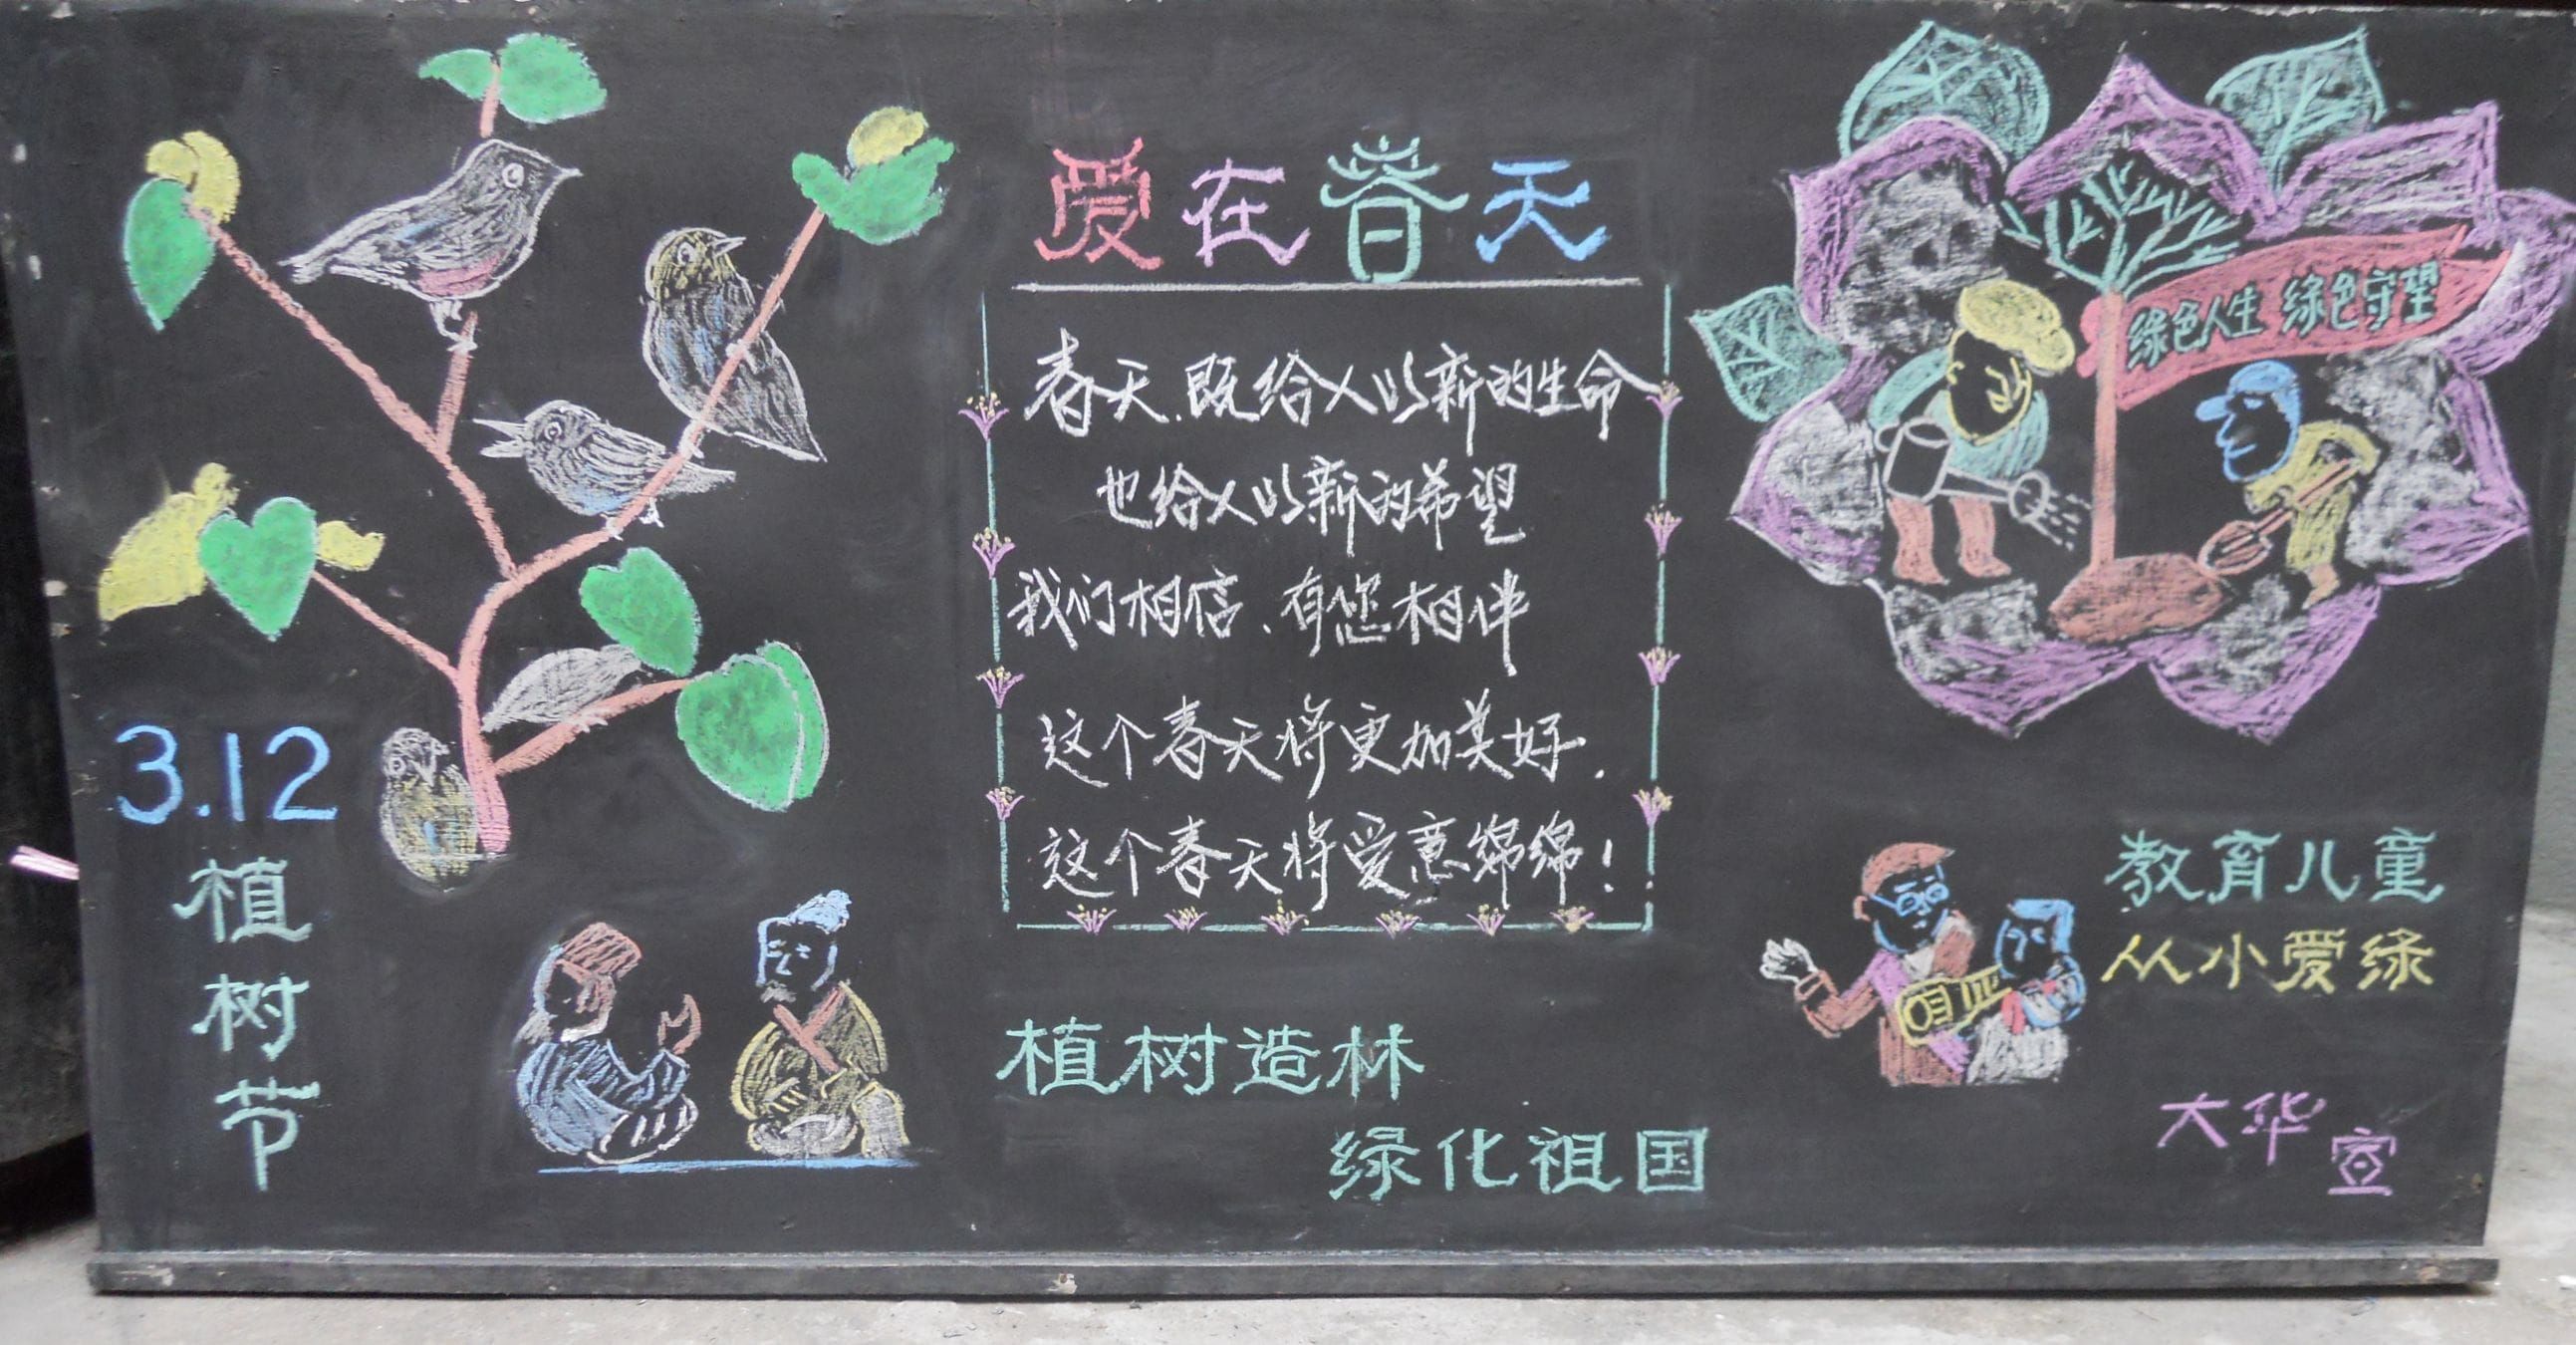 爱在春天
春天.既给人以新的生命
也给人以新的希望
我们相信、有您相伴
这个春天将更加美好.
这个春天将爱意绵绵!
3.12
植
树
节
植树造林
绿化祖国
绿色人生 绿色守望
教育儿童
从小爱绿
大华宣